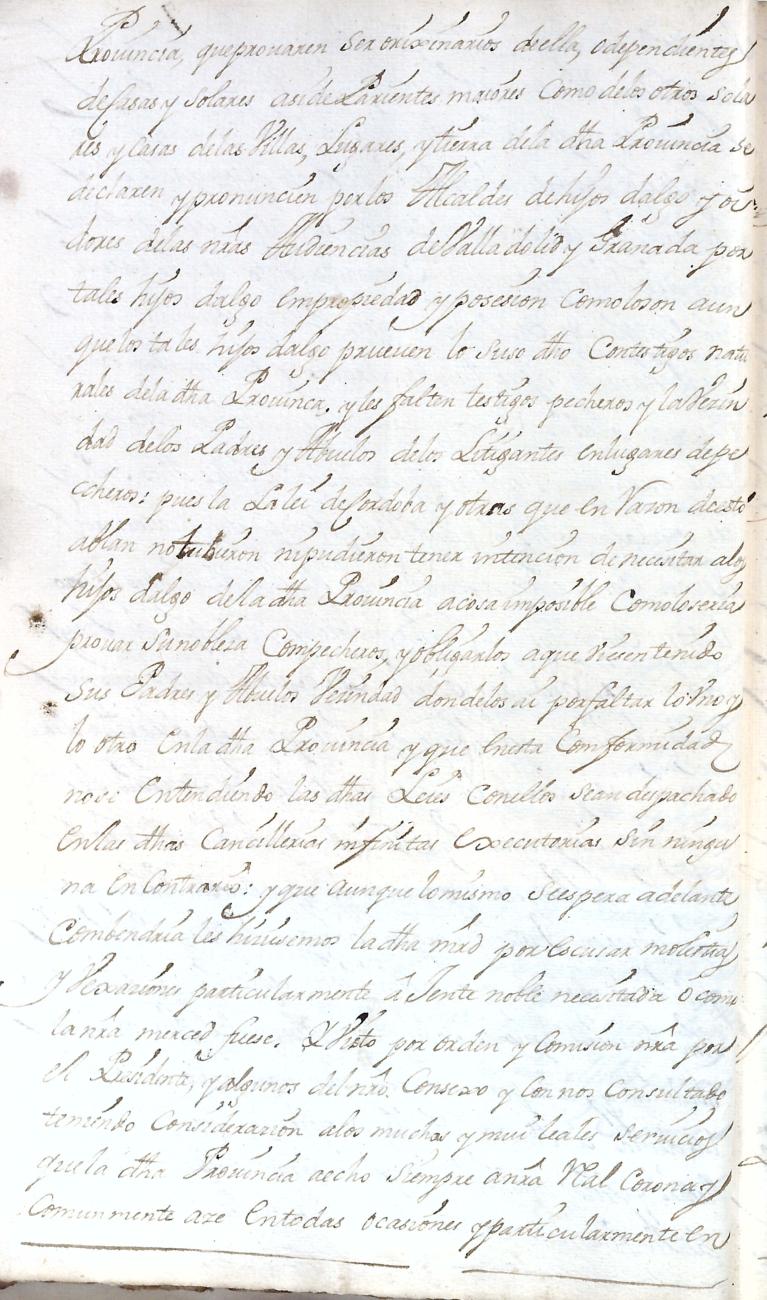 Provincia, que provaren ser orixinarios de ella, o dependientes
de Casas y Solares asi de Parientes maiores como de los otros sola
res y Casas de las Villas, Lugares, y tierra de la dha Provincia se
declaren y pronuncien por los Alcaldes de hijos dalgo y oi
dores de las nras Audiencias de Valladolid y Granada por
tales hijos dalgo en propiedad y posesion como lo son aun
que los tales hijos dalgo prueven lo suso dho con testigos natu
rales de la dha Provinca. y les falten testigos pecheros y la Vezin
dad de los Padres y Abuelos de los Litigantes en lugares de pe
cheros: pues la La lei de Cordoba y otras que en razon de esto
ablan no tubieron ni pudieron tener intencion de necesitar a los
hijos dalgo de la dha Provincia a cosa imposible como lo seria
provar su nobleza con pecheros, y obligarlos a que Viesen tenido
sus Padres y Abuelos Vecindad donde los ai por faltar lo Uno y
lo otro en la dha Provincia y que en esta Comformidad
no se entendiendo las dhas Leies con ellos se an despachado
en las dhas Cancillerias infinitas executorias sin ningu
na en Contrario: y que aunque lo mismo se espera adelante
Combendria les hiciesemos la dha mrd por escusar molestia
y Vexaciones particularmente â Jente noble necesitada o como
la nra merced fuese. Y Visto por orden y Comision nra por
el Presidente, y algunos del nro. Consexo y con nos Consultado
teniendo Consideracion a los muchos y mui leales servicios
que la dha Provincia a echo siempre a nra Real Corona y
Comunmente aze en todas ocasiones y particularmente en